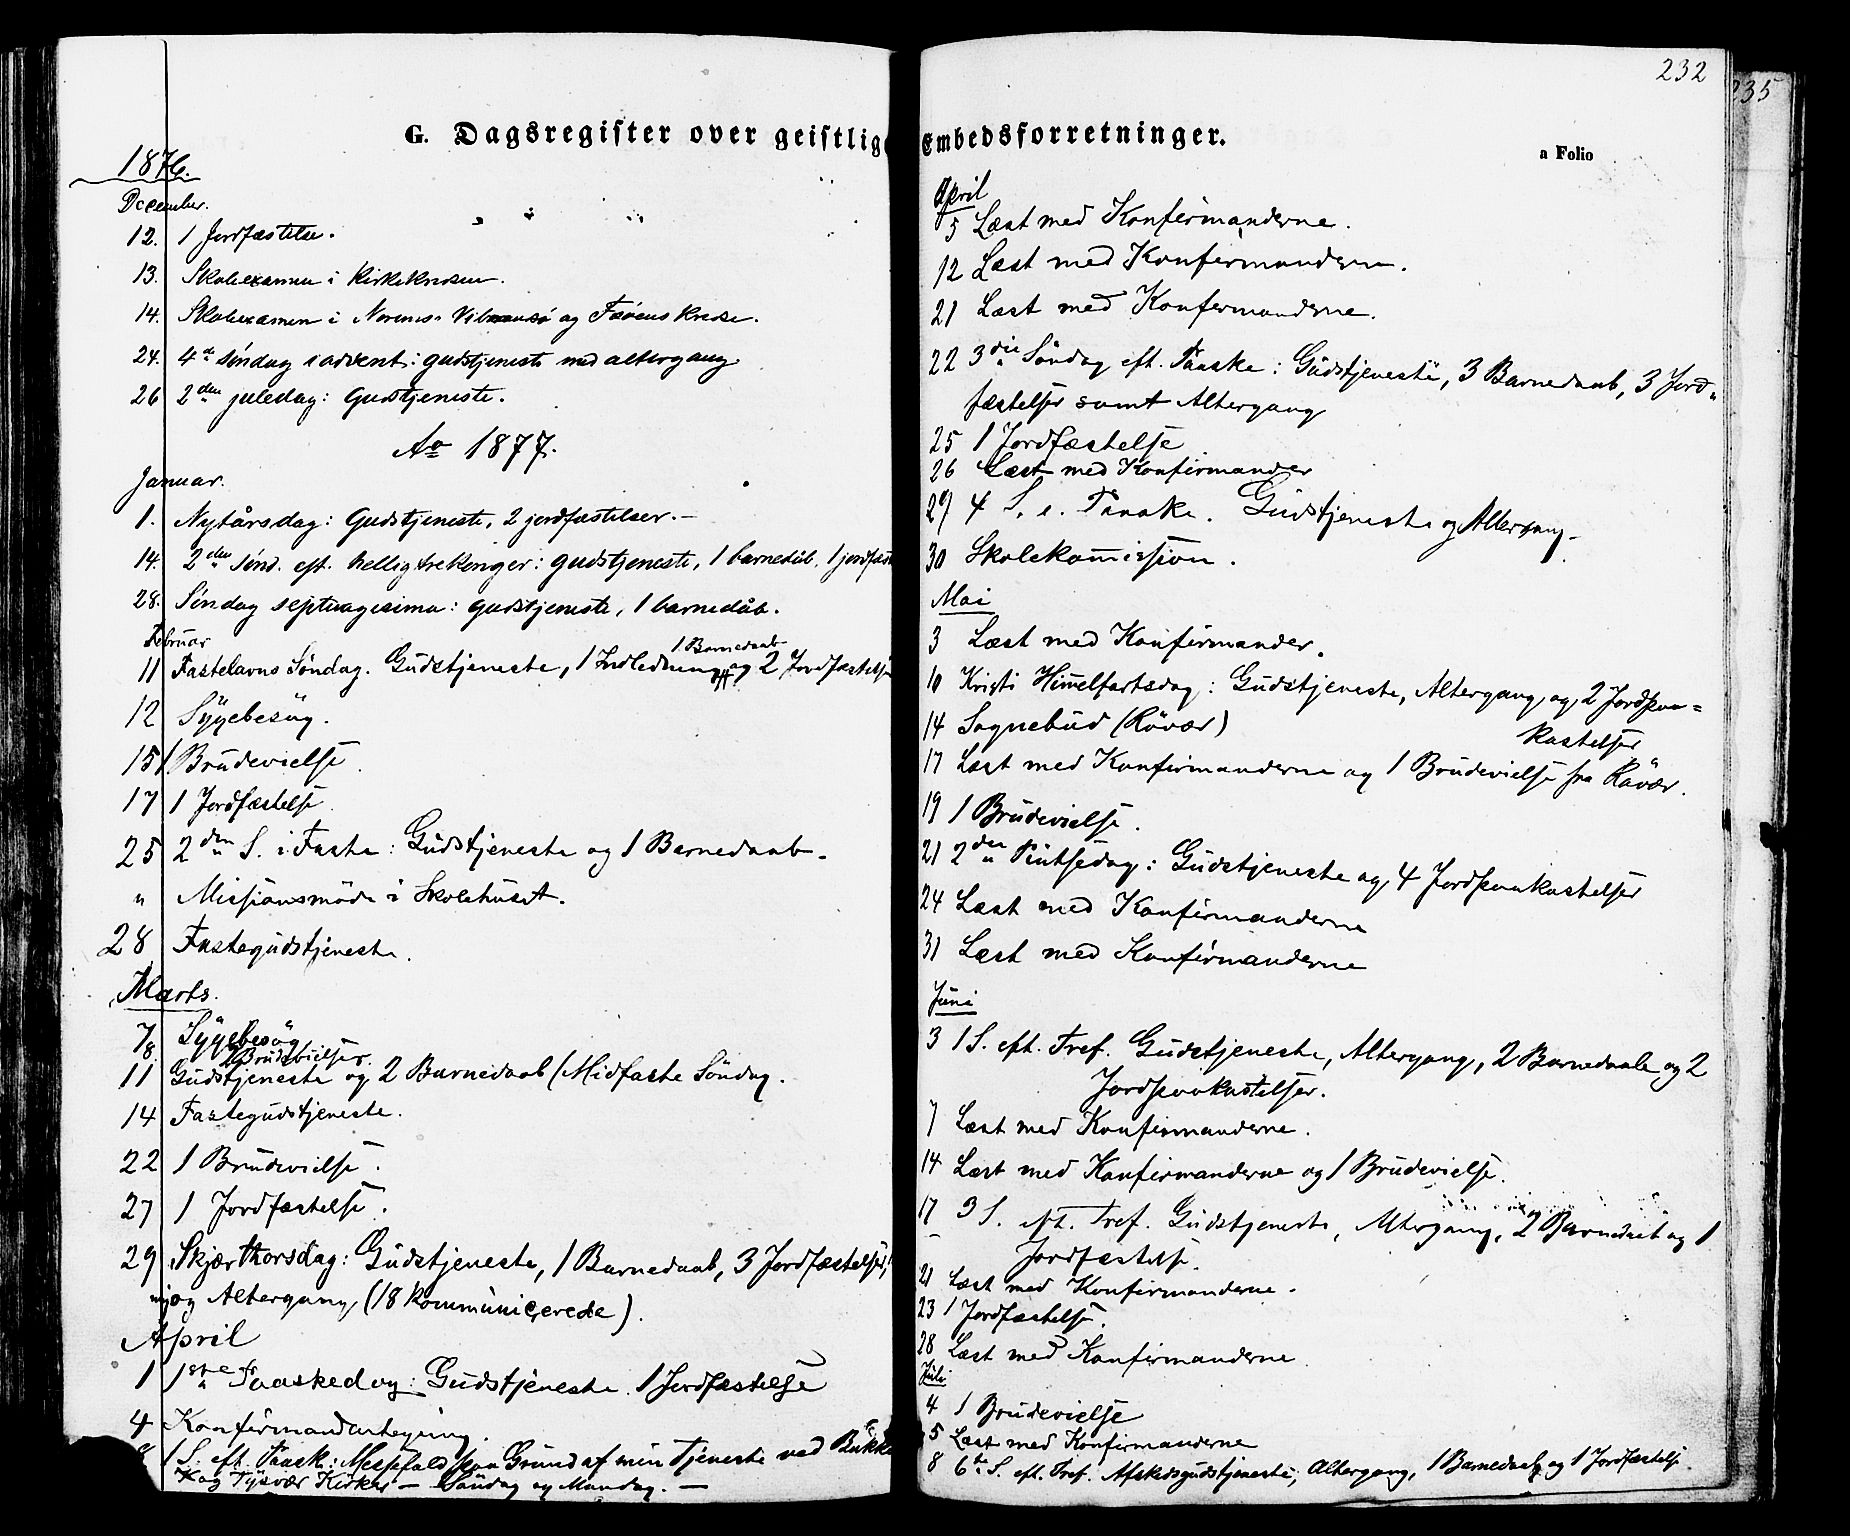 G. Dagsregister over geistlig
1876.
December.
12. 1 Jordfæstelse.
13. Skoleexamen i Kirkekredsen.
14. Skoleexamen i og Føvens Kredse.
24. 4de søndag i advent: gudstjeneste med altergang
26 2den juledag: Gudstjeneste.
Ao 1877.
Januar.
1. Nytårsdag: Gudstjeneste, 2 jordfæstelser. —
14. 2den sønd. eft. helligtrekonger: gudstjeneste, 1 barnedåb, 1 jordfæst
28. Søndag septuagesima: gudstjeneste, 1 barnedåb.
Februar
1 Barnedaab
11 Fastelavns Söndag. Gudstjeneste, 1 Indledning og 2 Jordfæstelse
12 Sygebesög.
15 1 Brudevielse.
17 1 Jordfæstelse.
25 2den S. i Faste: Gudstjeneste og 1 Barnedaab.
" Missionsmöde i Skolehuset.
28 Fastegudstjeneste.
Marts.
7 Sygebesög
8. Brudevielser.
11 Gudstjeneste og 2 Barnedaab (Midfaste Söndag.
14 Fastegudstjeneste.
22 1 Brudevielse.
27 1 Jordfæstelse.
29 Skjærthorsdag: Gudstjeneste, 1 Barnedaab, 3 Jordfæstelser,
og Altergang (18 kommunicerede).
April
1 1ste Paaskedag: Gudstjeneste. 1 Jordfæstelse
4 Konfirmandantegning.
8 1 S. eft. Paask: Messefald paa Grund af min Tjeneste ved Bukke
og Tysvær Kirker — Söndag og Mandag. —
232
235
Embedsforretninger.
a Folio
April
5 Læst med Konfirmanderne.
12 Læst med Konfirmanderne.
21 Læst med Konfirmanderne.
22 3die Söndag eft. Paaske: Gudstjeneste, 3 Barnedaab, 3 Jord-
fæstelser samt Altergang
25 1 Jordfæstelse
26 Læst med Konfirmander
29 4 S. e. Paaske. Gudstjeneste og Altergang
30 Skolekommission.
Mai
3 Læst med Konfirmander.
10 Kristi Himmelfartsdag: Gudstjeneste, Altergang og 2 Jordpaa=
kastelser
14 Sognebud (Rövær)
17 Læst med Konfirmanderne og 1 Brudevielse fra Rövær.
19 1 Brudevielse.
21 2den Pintsedag: Gudstjeneste og 4 Jordpaakastelser
24 Læst med Konfirmanderne
31 Læst med Konfirmanderne
Juni
3 1 S. eft. Tref. Gudstjeneste, Altergang, 2 Barnedaab og 2
Jordpaakastelser.
7 Læst med Konfirmanderne.
14 Læst med Konfirmanderne og 1 Brudevielse.
17 3 S. eft. Tref. Gudstjeneste, Altergang, 2 Barnedaab og 1
Jordfæstelse.
21 Læst med Konfirmanderne.
23 1 Jordfæstelse.
28 Læst med Konfirmanderne.
Juli
4 1 Brudevielse
5 Læst med Konfirmanderne
8 6te S. eft. Tref. Afskedsgudstjeneste, Altergang, 1 Barnedaab og 1 Jordfæstelse.